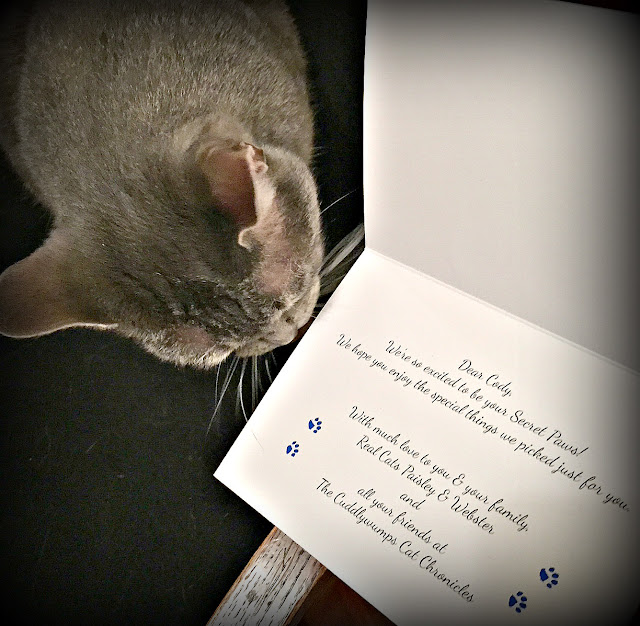 Dear Cody,
We're so excited to be your Secret Paws!
We hope you enjoy the special things we picked just for you.
With much love to you & your family,
Real Cats Paisley & Webster
and
all your friends at
The Cuddlywumps Cat Chronicles